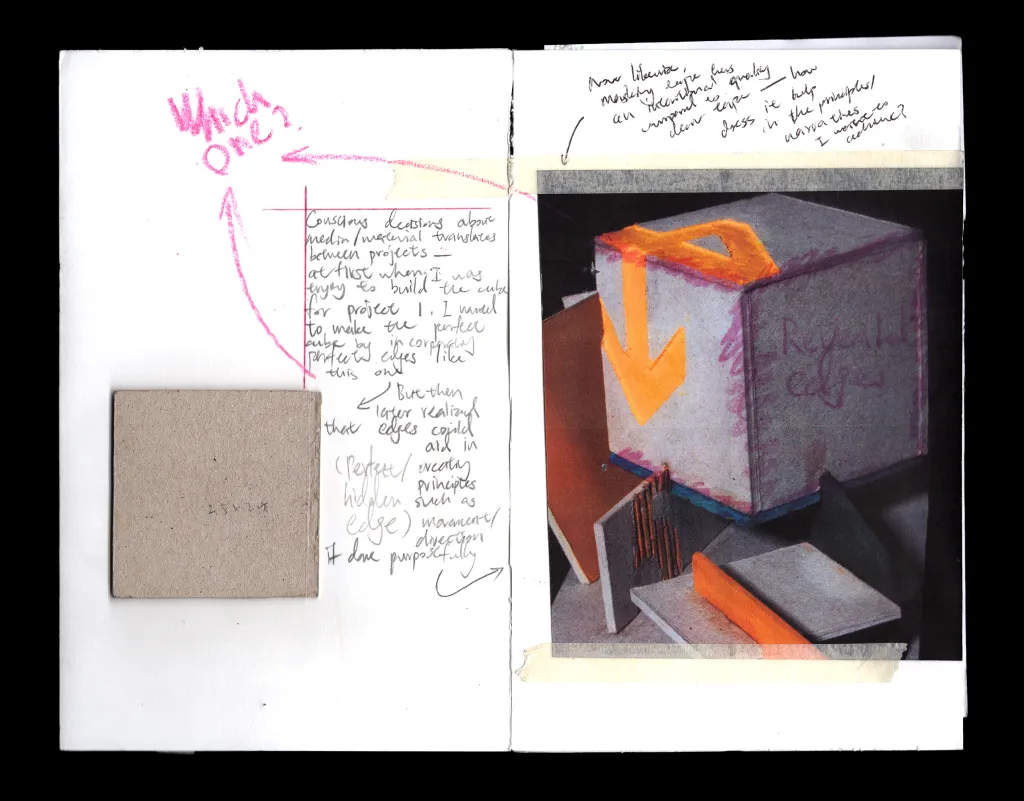 Which
one?
Conscious decisions about
media/material translates
between projects —
at first when, I was
trying to build the cube
for project 1. I wanted
to make the perfect
cube by incorporating
perfect edges like
this one
But then
later realized
that edges could
aid in
(Perfect/
hidden
edge)
creating
principles
such as
movement/
direction
if done purposefully
masking tape has
an intentional quality
compared to
clean tape — how
does it help
in the principles/
narrative
I want to
Revealed
edges